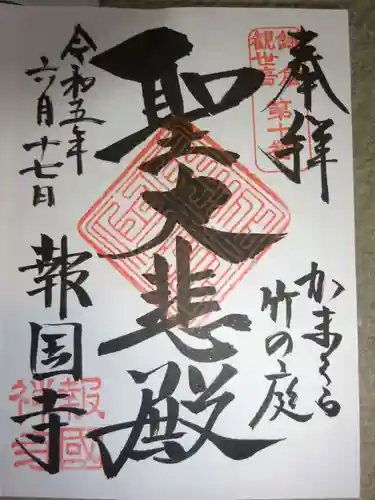 奉拝
鎌倉
観世音
第十番
かまくら
竹の庭
聖大悲殿
令和五年
六月十七日
報国寺
報國
禅寺